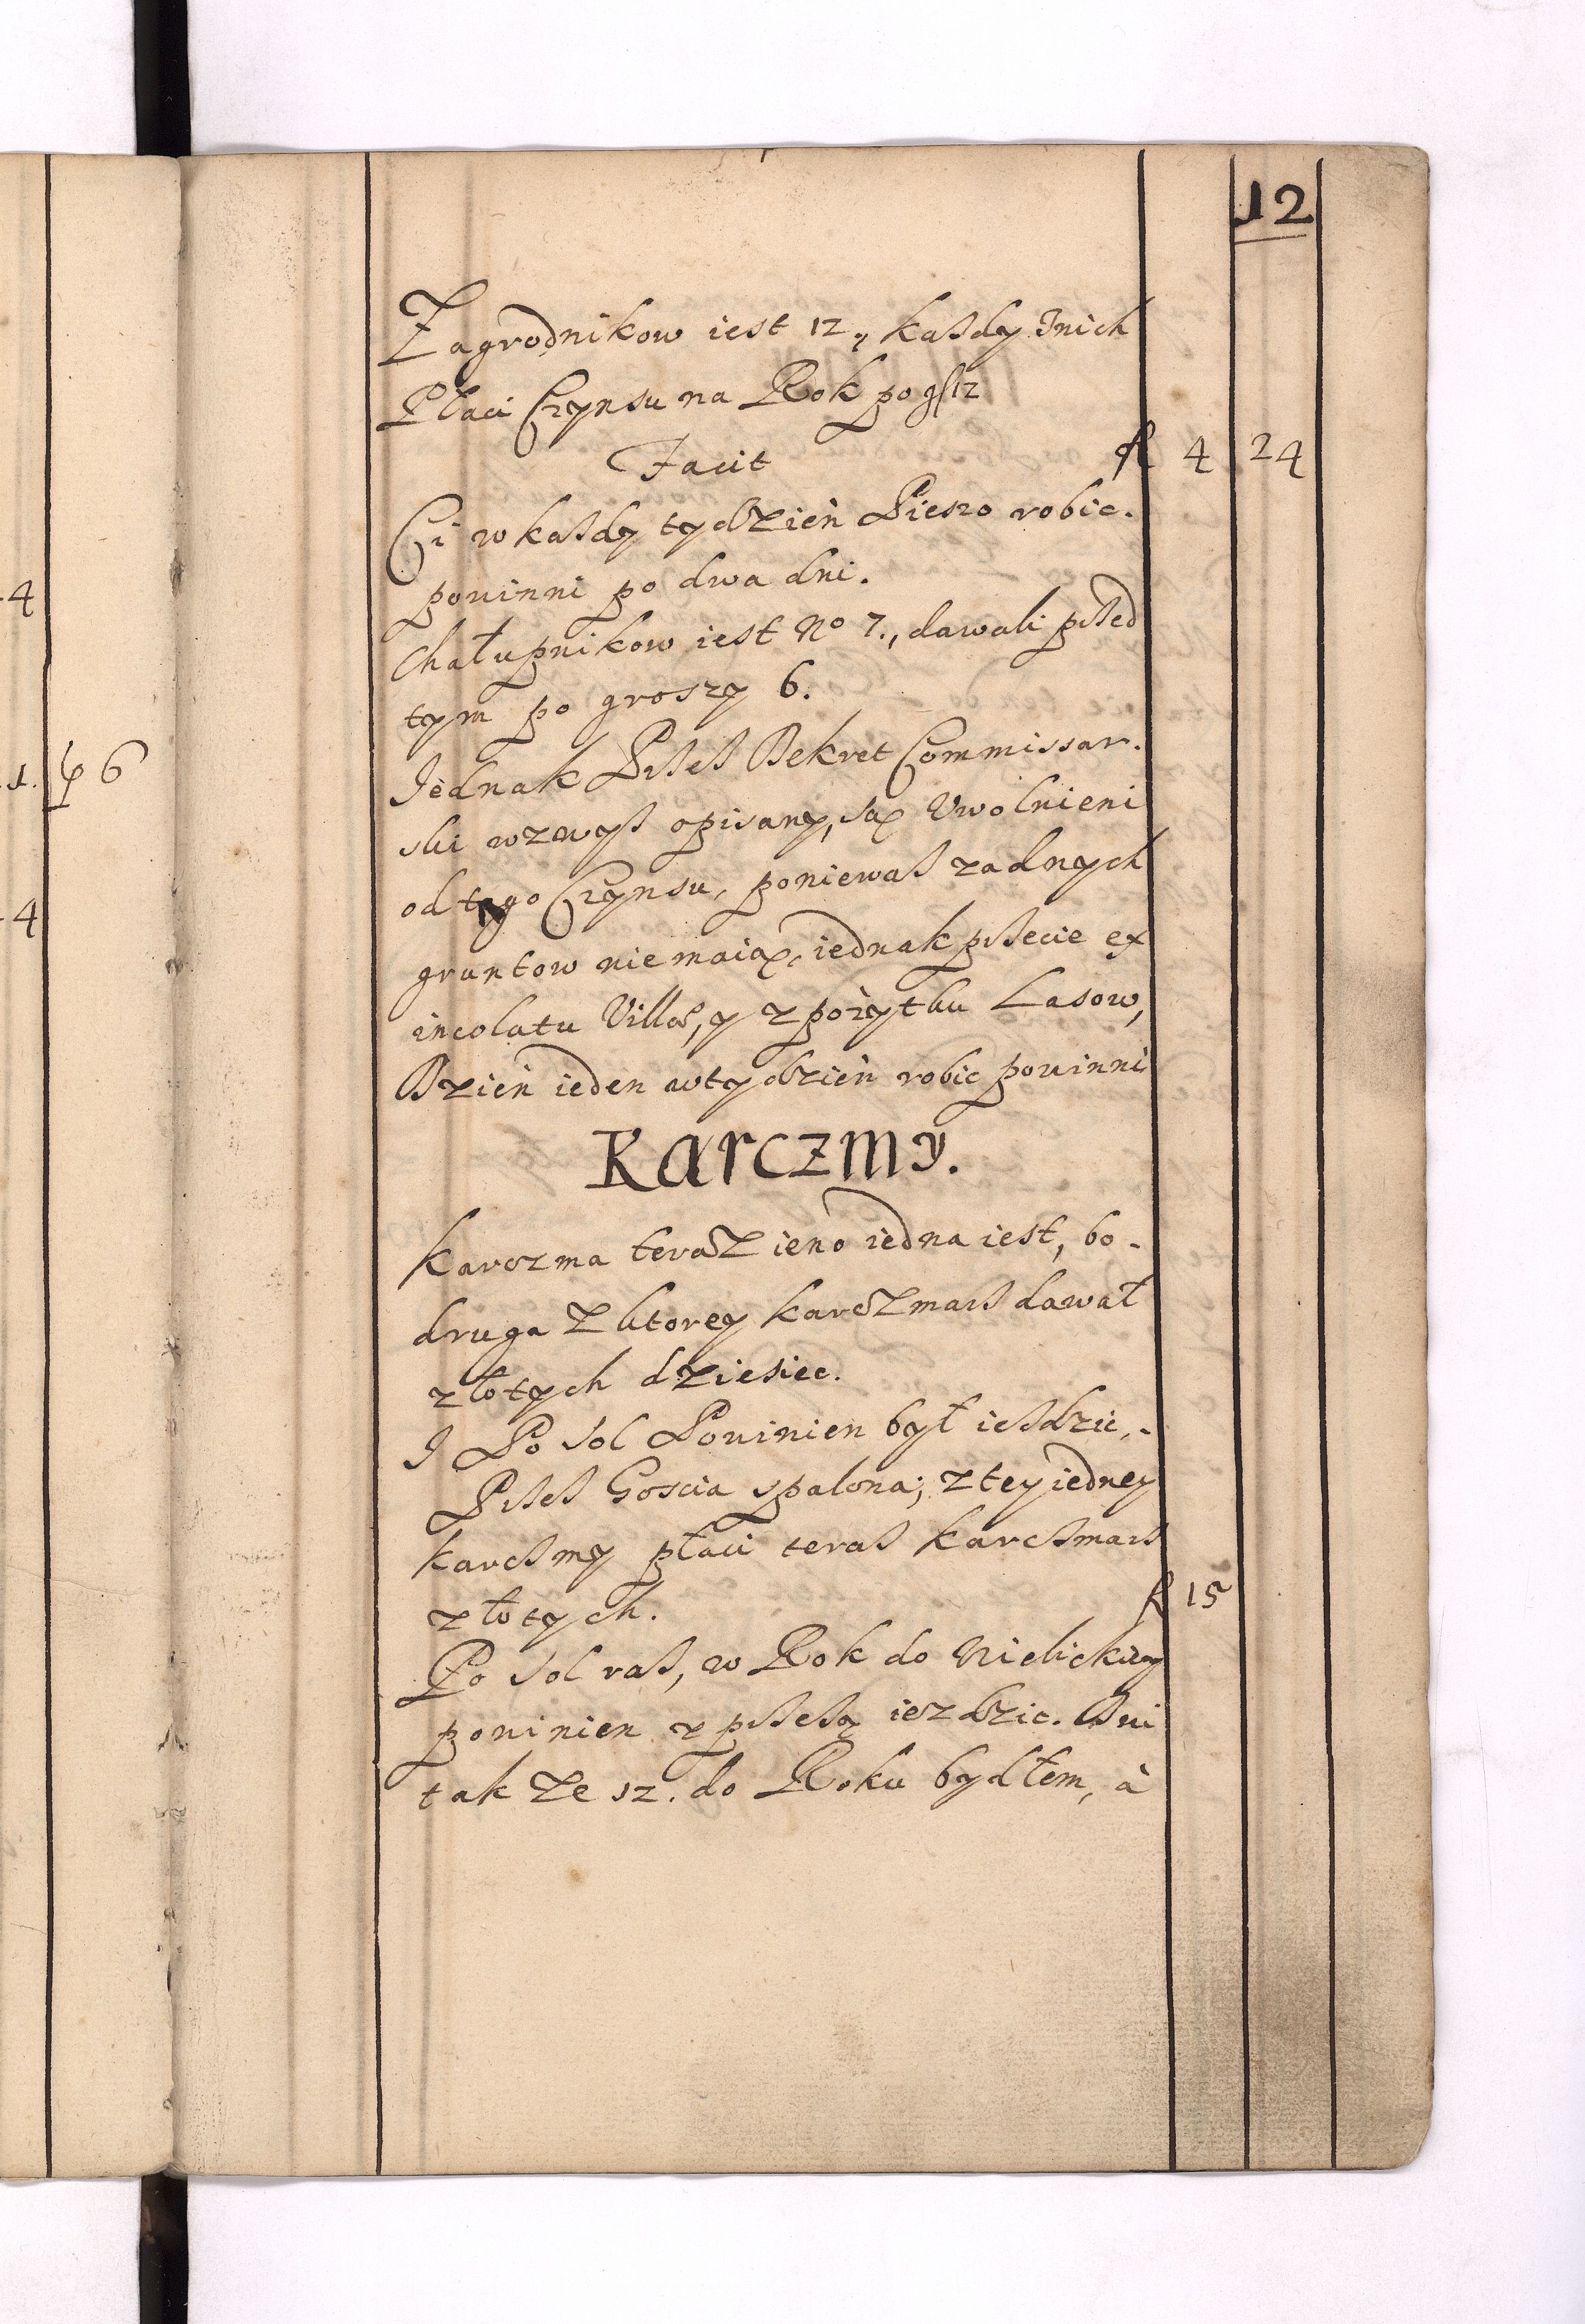 12
Zagrodnikow iest 12, kaßdy Znich
Płaci Czynsu na Rok po gß 12
Facit fl 4 24
Ci w kaßdy tydzień Pieszo robic.
powinni po dwa dni.
Chałupnikow iest No 7., dawali pßed
tym po groszy 6.
Jednak Pßeß Dekret Commissar.
ski wzwyß opisany, są Uwolnieni
od tego Czynsu, poniewaß zadnych
gruntow nie maią, iednak pßecie ex
incolatu Villæ, y z pożytku Lasow,
Dzień ieden w tydzień robic powinni
Karczmy.
Karczma teraz ieno iedna iest, bo.
druga z ktorey Karczmarß dawał
złotych dziesiec.
J Po sol Powinien był ießdzic,.
Pßeß Goscia spalona; z tey iedney
karcßmy płaci teraß karcßmarß
złotych. fl 15
Po sol raß, w Rok do Wielicki
powinien iezdzic. Dni
tak ze 12. do Roku bydłem, à
4
1. 6
4